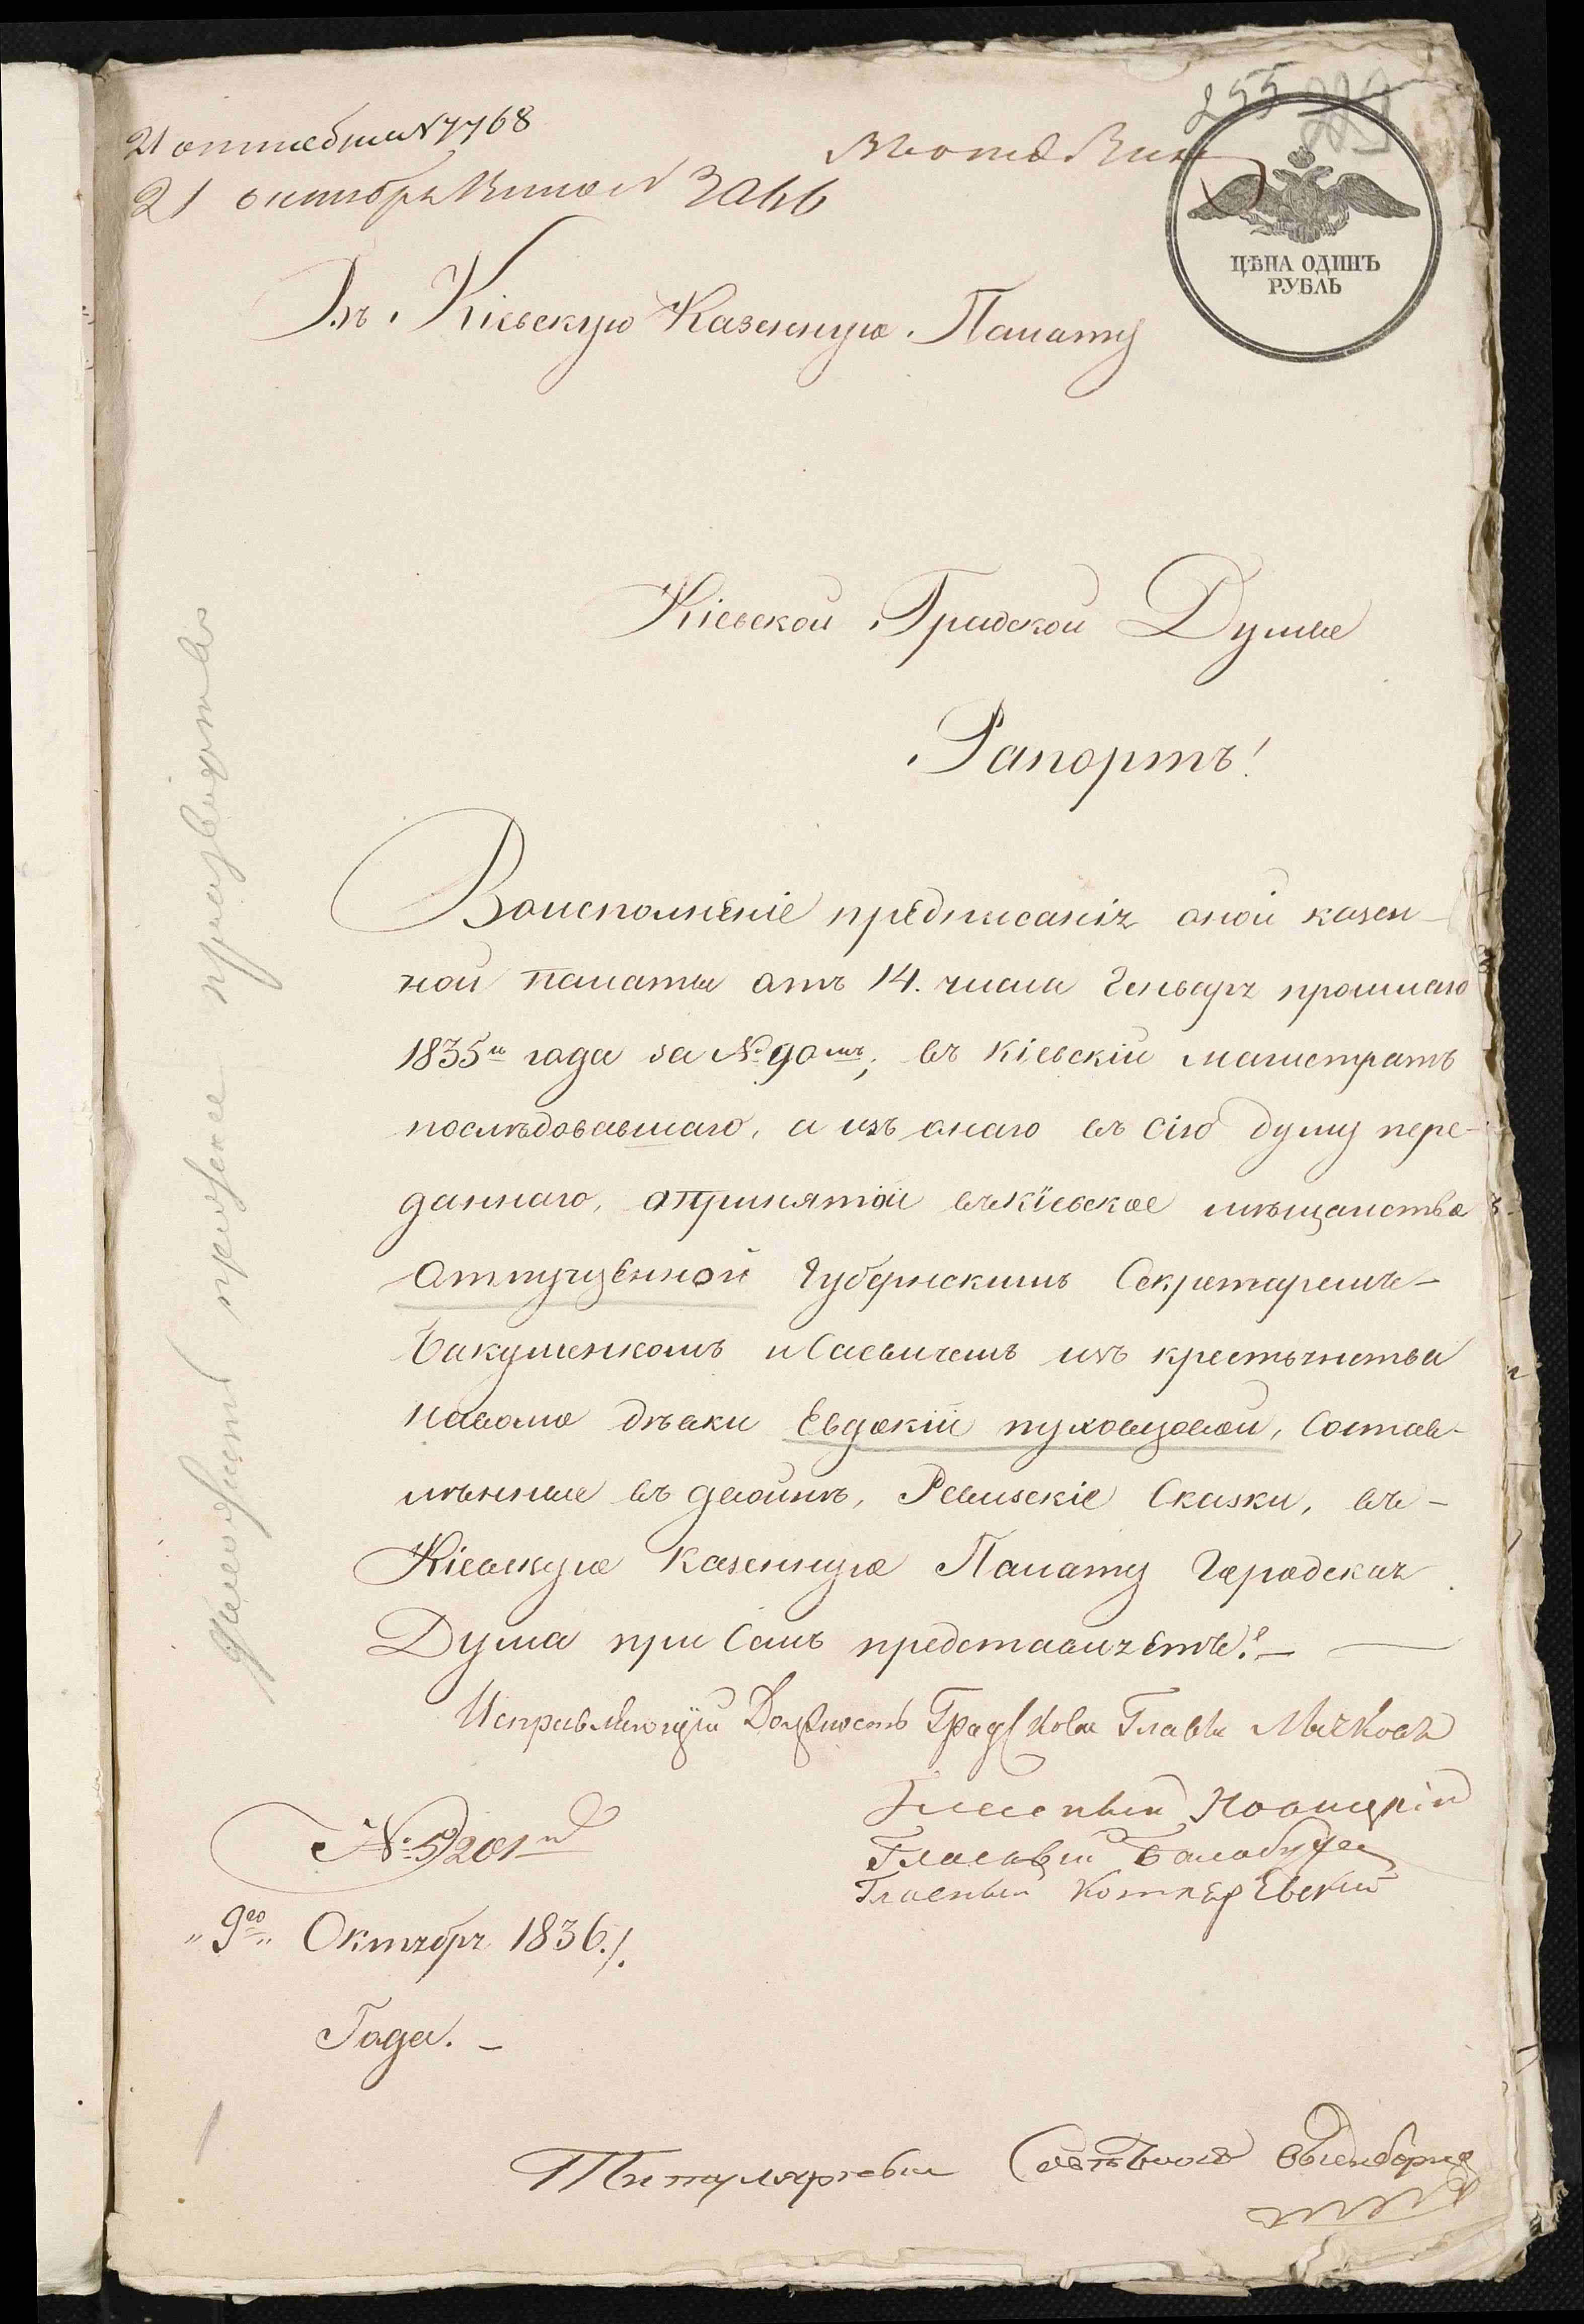 255
21 октября № 7768
21 октября № 3066
ЦѢНА ОДИНЪ
РУБЛЬ
Въ Кіевскую Казенную Палату
Кіевской Градской Думы
Рапортъ!
Воисполненіе предписанія оной казен-
ной палаты отъ 14. числа Генваря прошлаго
1835го года за № 90мъ; въ Кіевскій магистратъ
послѣдовавшаго, а изъ онаго въ сію думу пере-
даннаго, опринятой въ Кіевское мѣщанство
отпущенной Губернскимъ Секретаремъ-
Бакуменкомъ и Саевичемъ изъ крестьянства
наволю дѣвки Евдокіи пуховцовой, Состав-
лѣнные въ двойнѣ, Ревизскіе Сказки, въ-
Кіевскую Казенную Палату Городская
Дума при Семъ представляетъ.
Исправляющій Должность Градскова Главы Лычковъ
Гласный Новицкій
Гласный Балабуха
Гласный Котляревский
№ 5201й
„9го„ Октября 1836./.
Года.
Титулярный Совѣтникъ